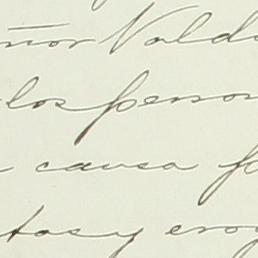 mor Vald
los person
causa fa
tas y erog